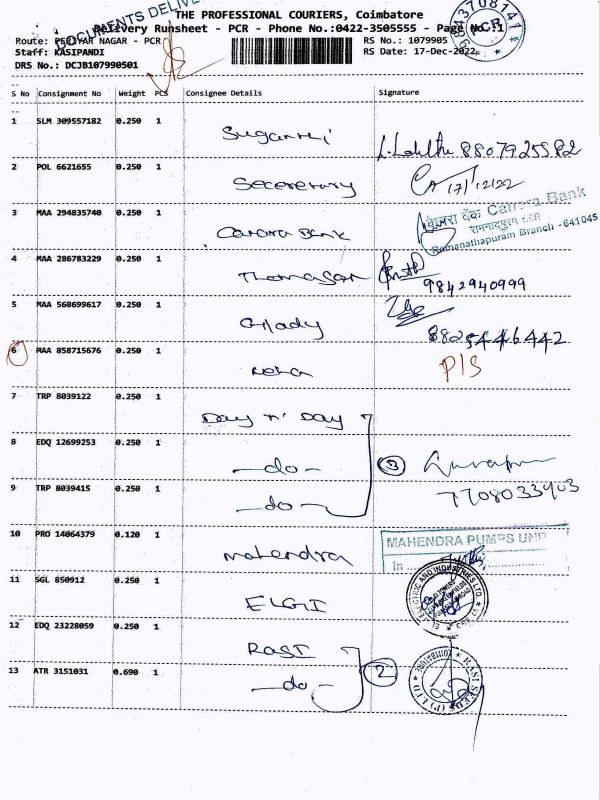 DOCUMENTS DELIVE
THE PROFESSIONAL COURIERS, Coimbatore
Delivery Runsheet - PCR - Phone No.:0422-3505555 - Page No.:1
Route: PERIYAR NAGAR - PCR
RS No.: 1079905
Staff: KASIPANDI
RS Date: 17-Dec-2022
DRS No.: DCJB107990501
PCR
S No Consignment No Weight PCS Consignee Details Signature
1 SLM 309557182 0.250 1 Suganthi 8807925582
2 POL 6621655 0.250 1 Seceretary 17/12/22
3 MAA 294835740 0.250 1 Canara Bank
केनरा बैंक Canara Bank
Ramanathapuram Branch - 641045
4 MAA 286783229 0.250 1 Thomason 9842940999
5 MAA 568699617 0.250 1 Glady 8825446442
6 MAA 858715676 0.250 1 P/S
7 TRP 8039122 0.250 1 Day n' Day
8 EDQ 12699253 0.250 1 -do- 3
9 TRP 8039415 0.250 1 -do- 7708033903
10 PRO 14064379 0.120 1 mahendra
MAHENDRA PUMPS UNIT
In
11 SGL 850912 0.250 1 ELGI
12 EDQ 23228059 0.250 1 RASI
13 ATR 3151031 0.690 1 -do- 2
RASI SEEDS (P) LTD